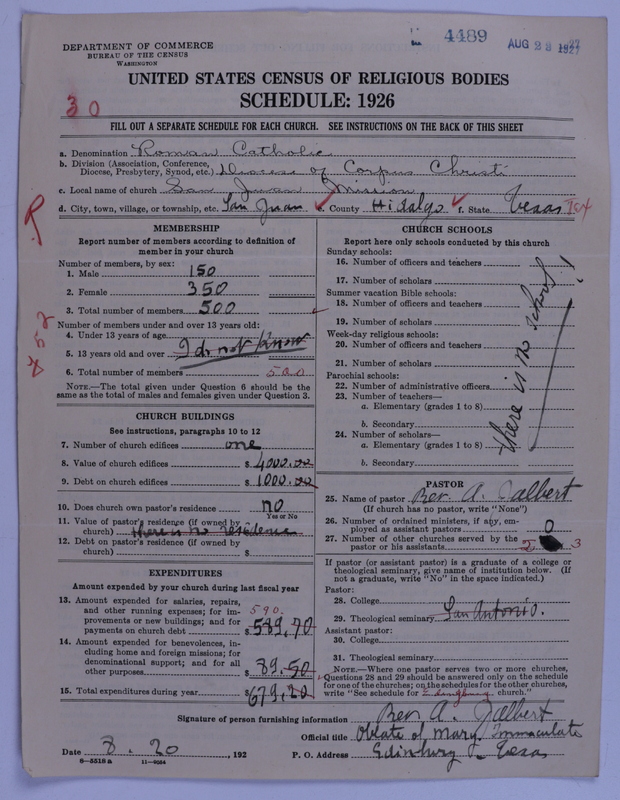 4489
AUG 23 1927
DEPARTMENT OF COMMERCE
BUREAU OF THE CENSUS
WASHINGTON
UNITED STATES CENSUS OF RELIGIOUS BODIES
SCHEDULE: 1926
30
FILL OUT A SEPARATE SCHEDULE FOR EACH CHURCH. SEE INSTRUCTIONS ON THE BACK OF THIS SHEET
a. Denomination Roman Catholic
b. Division (Association, Conference,
Diocese, Presbytery, Synod, etc.) Diocese of Corpus Christi
c. Local name of church San Juan Mission
d. City, town, village, or township, etc. San Juan e. County Hidalgo f. State Texas Tex
R
452
MEMBERSHIP
Report number of members according to definition of
member in your church
Number of members, by sex:
1. Male 150
2. Female 350
3. Total number of members 500
Number of members under and over 13 years old:
4. Under 13 years of age
5. 13 years old and over I do not know
6. Total number of members 500
NOTE.—The total given under Question 6 should be the
same as the total of males and females given under Question 3.
CHURCH BUILDINGS
See instructions, paragraphs 10 to 12
7. Number of church edifices one
8. Value of church edifices $ 4000.00
9. Debt on church edifices $ 1000.00
10. Does church own pastor's residence no
Yes or No
11. Value of pastor's residence (if owned by
church) There is no residence
12. Debt on pastor's residence (if owned by
church) $
EXPENDITURES
Amount expended by your church during last fiscal year
13. Amount expended for salaries, repairs,
and other running expenses; for im-
provements or new buildings; and for
payments on church debt $ 589.70
590.
14. Amount expended for benevolences, in-
cluding home and foreign missions; for
denominational support; and for all
other purposes $ 89.50
15. Total expenditures during year $ 679.20
CHURCH SCHOOLS
Report here only schools conducted by this church
Sunday schools:
16. Number of officers and teachers
17. Number of scholars
Summer vacation Bible schools:
18. Number of officers and teachers
19. Number of scholars
Week-day religious schools:
20. Number of officers and teachers
21. Number of scholars
Parochial schools:
22. Number of administrative officers
23. Number of teachers—
a. Elementary (grades 1 to 8)
b. Secondary
24. Number of scholars—
a. Elementary (grades 1 to 8)
b. Secondary
there is no school!
PASTOR
25. Name of pastor Rev. A. Jalbert
(If church has no pastor, write "None")
26. Number of ordained ministers, if any, em-
ployed as assistant pastors 0
27. Number of other churches served by the
pastor or his assistants 2 3
If pastor (or assistant pastor) is a graduate of a college or
theological seminary, give name of institution below. (If
not a graduate, write "No" in the space indicated.)
Pastor:
28. College
29. Theological seminary San Antonio.
Assistant pastor:
30. College
31. Theological seminary
NOTE.—Where one pastor serves two or more churches,
Questions 28 and 29 should be answered only on the schedule
for one of the churches; on the schedules for the other churches,
write "See schedule for Edinburg church."
Signature of person furnishing information Rev. A. Jalbert
Official title Oblate of Mary Immaculate
Date 8. 20, 192 P. O. Address Edinburg Texas
8—5518 a 11—9084